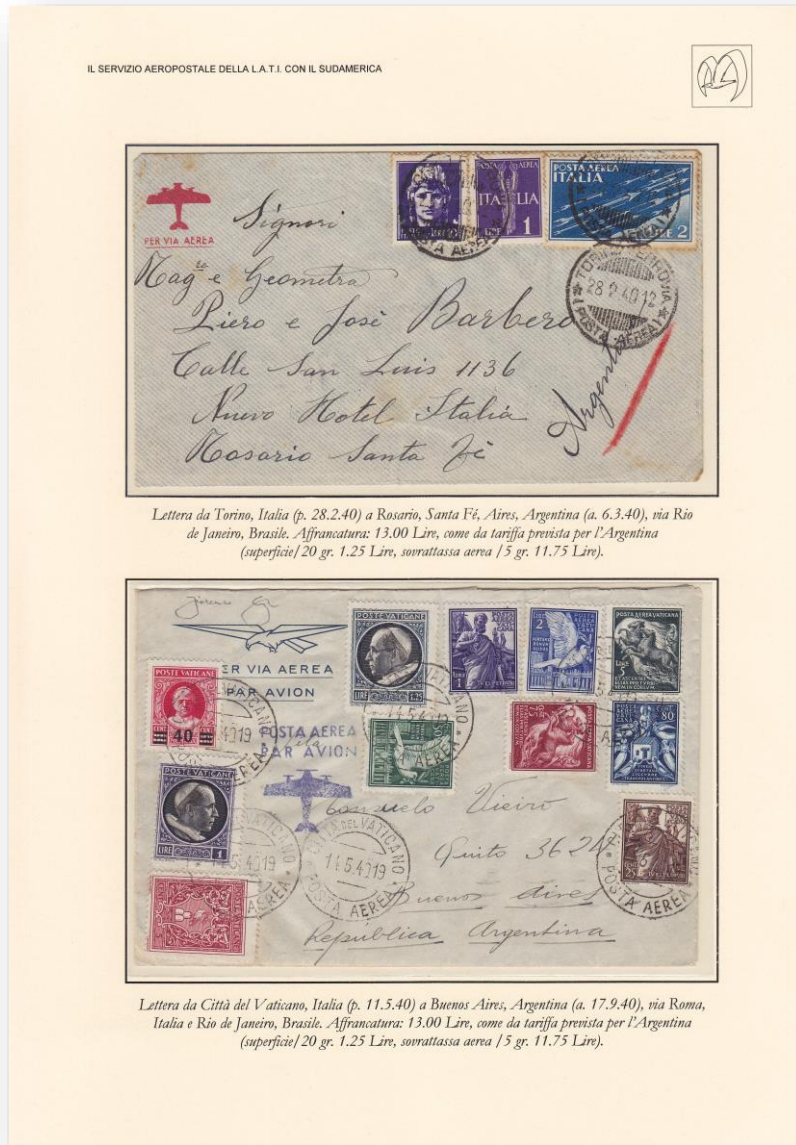 IL SERVIZIO AEROPOSTALE DELLA L.A.T.I. CON IL SUDAMERICA
POSTA AEREA
ITALIA
LIRE 1
POSTA AEREA
ITALIA
LIRE 2
POSTA AEREA
PER VIA AEREA
TORINO FERROVIA
28 2 40 12
POSTA AEREA
Signori
Rag.re e Geometra
Piero e José Barbero
Calle San Luis 1136
Nuevo Hotel Italia
Rosario Santa Fè
Argentina
Lettera da Torino, Italia (p. 28.2.40) a Rosario, Santa Fé, Aires, Argentina (a. 6.3.40), via Rio
de Janeiro, Brasile. Affrancatura: 13.00 Lire, come da tariffa prevista per l'Argentina
(superficie/20 gr. 1.25 Lire, sovrattassa aerea /5 gr. 11.75 Lire).
PER VIA AEREA
PAR AVION
POSTE VATICANE
LIRE 1,25
2
POSTA AEREA VATICANA
LIRE 5
POSTE VATICANE
40
POSTA AEREA
PAR AVION
80
POSTE VATICANE
LIRE 1
25
CITTÀ DEL VATICANO
11.5.40 19
POSTA AEREA
Consuelo Vieiro
Quito 362
Buenos Aires
Republica Argentina
Lettera da Città del Vaticano, Italia (p. 11.5.40) a Buenos Aires, Argentina (a. 17.9.40), via Roma,
Italia e Rio de Janeiro, Brasile. Affrancatura: 13.00 Lire, come da tariffa prevista per l'Argentina
(superficie/20 gr. 1.25 Lire, sovrattassa aerea /5 gr. 11.75 Lire).